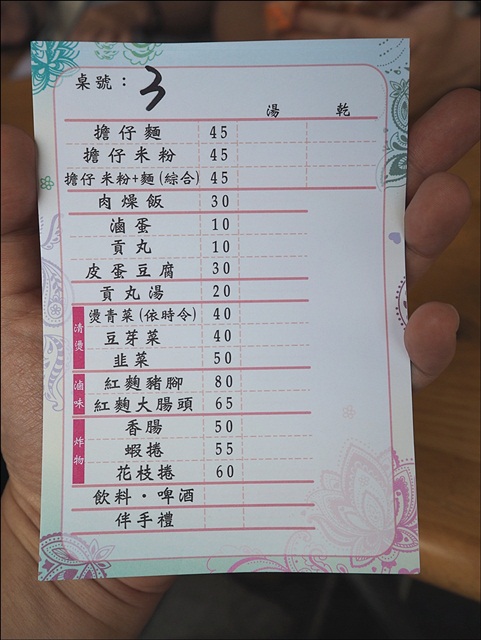 桌號：3
湯 乾
擔仔麵 45
擔仔米粉 45
擔仔米粉+麵(綜合) 45
肉燥飯 30
滷蛋 10
貢丸 10
皮蛋豆腐 30
貢丸湯 20
清燙
燙青菜(依時令) 40
豆芽菜 40
韭菜 50
滷味
紅麴豬腳 80
紅麴大腸頭 65
炸物
香腸 50
蝦捲 55
花枝捲 60
飲料・啤酒
伴手禮